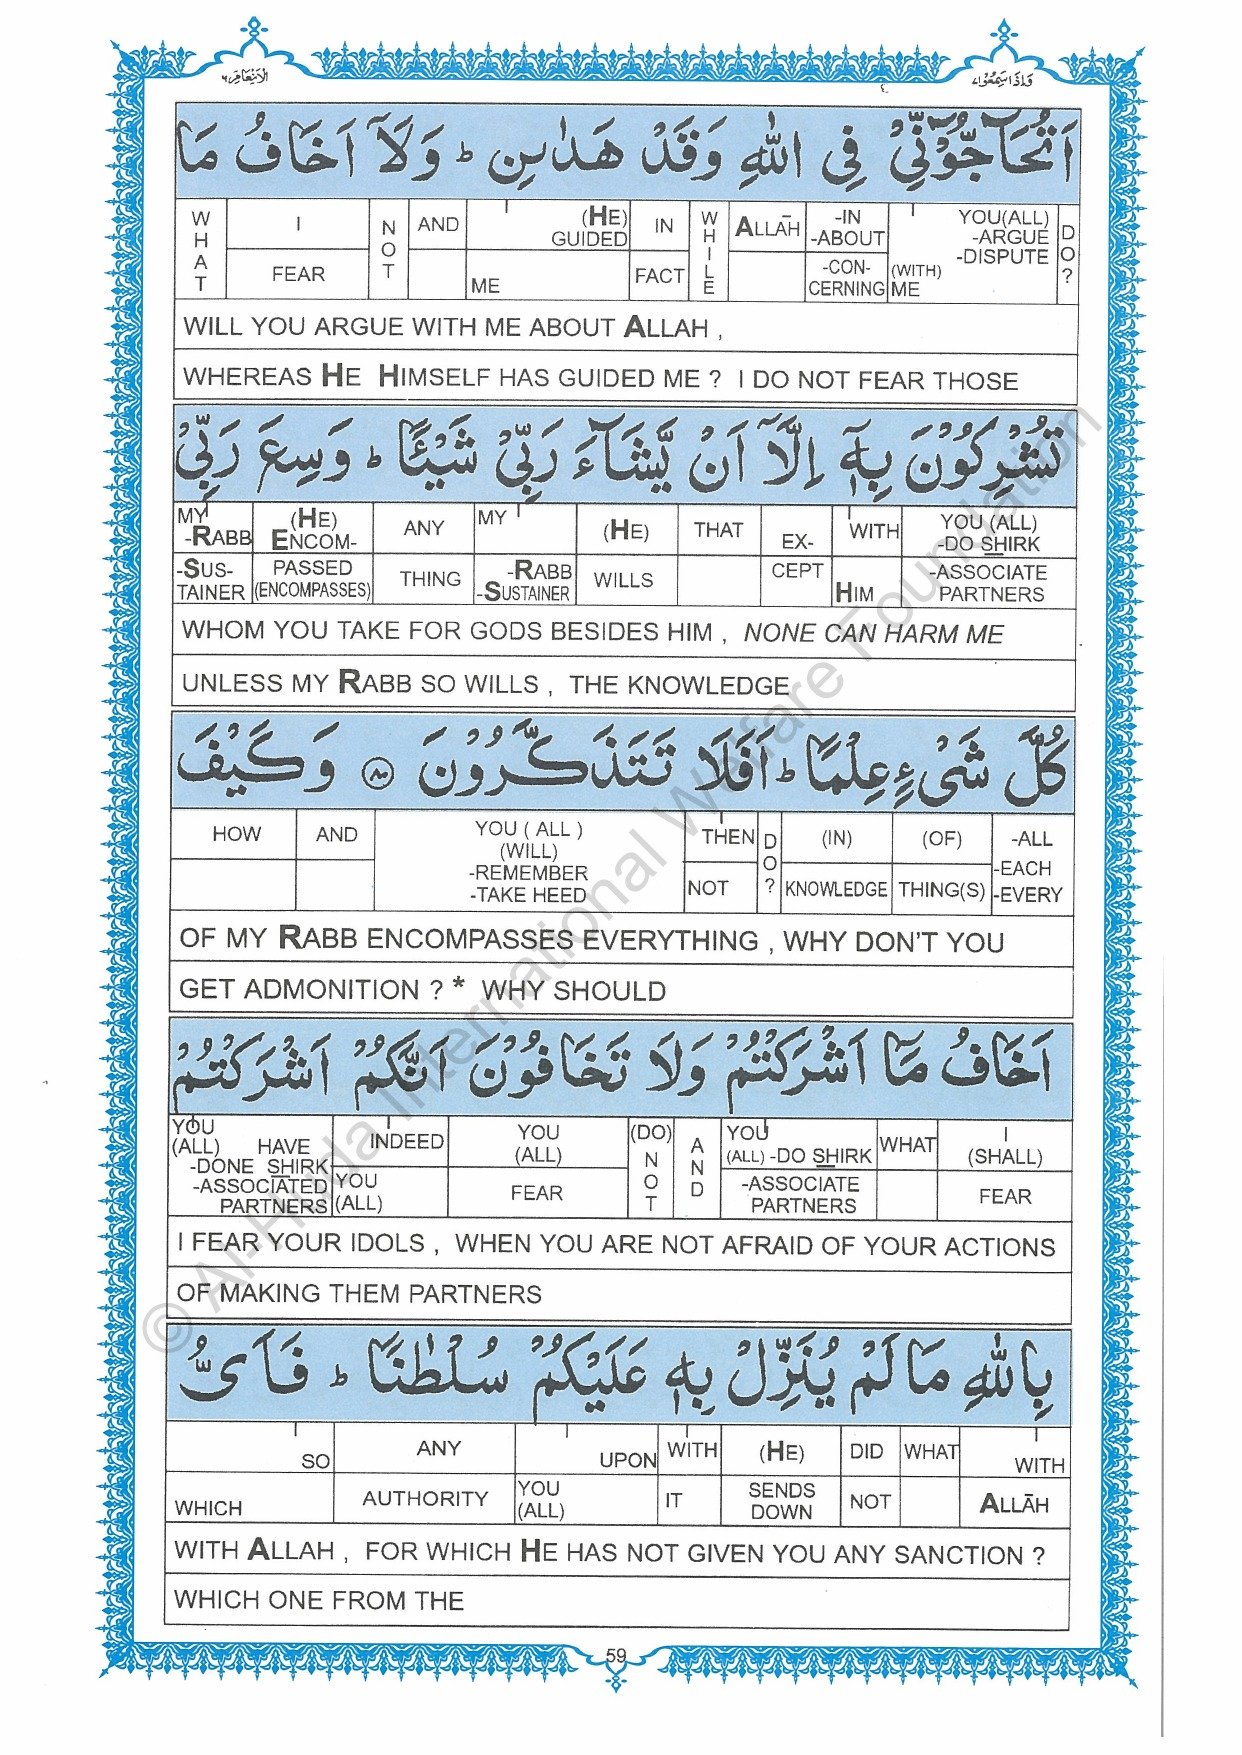 الانعام ٦
واذا سمعوا ٧
اَتُحَآجُّوْٓنِّيْ فِي اللّٰهِ وَقَدْ هَدٰىنِ ؕ وَلَآ اَخَافُ مَا
WHAT I FEAR NOT AND (HE) GUIDED ME IN FACT WHILE ALLĀH -IN -ABOUT -CONCERNING YOU(ALL) -ARGUE -DISPUTE (WITH) ME DO?
WILL YOU ARGUE WITH ME ABOUT ALLAH ,
WHEREAS HE HIMSELF HAS GUIDED ME ? I DO NOT FEAR THOSE
تُشْرِكُوْنَ بِهٖٓ اِلَّآ اَنْ يَّشَآءَ رَبِّيْ شَيْـًٔا ؕ وَسِعَ رَبِّيْ
MY -RABB -SUSTAINER (HE) ENCOMPASSED (ENCOMPASSES) ANY THING MY -RABB -SUSTAINER (HE) WILLS THAT EXCEPT WITH HIM YOU (ALL) -DO SHIRK -ASSOCIATE PARTNERS
WHOM YOU TAKE FOR GODS BESIDES HIM , NONE CAN HARM ME
UNLESS MY RABB SO WILLS , THE KNOWLEDGE
كُلَّ شَيْءٍ عِلْمًا ؕ اَفَلَا تَتَذَكَّرُوْنَ ﴿٨٠﴾ وَكَيْفَ
HOW AND YOU ( ALL ) (WILL) -REMEMBER -TAKE HEED THEN NOT DO? (IN) KNOWLEDGE (OF) THING(S) -ALL -EACH -EVERY
OF MY RABB ENCOMPASSES EVERYTHING , WHY DON'T YOU
GET ADMONITION ? * WHY SHOULD
اَخَافُ مَآ اَشْرَكْتُمْ وَلَا تَخَافُوْنَ اَنَّكُمْ اَشْرَكْتُمْ
YOU (ALL) HAVE -DONE SHIRK -ASSOCIATED PARTNERS INDEED YOU (ALL) YOU (ALL) FEAR (DO) NOT AND YOU (ALL) -DO SHIRK -ASSOCIATE PARTNERS WHAT I (SHALL) FEAR
I FEAR YOUR IDOLS , WHEN YOU ARE NOT AFRAID OF YOUR ACTIONS
OF MAKING THEM PARTNERS
بِاللّٰهِ مَا لَمْ يُنَزِّلْ بِهٖ عَلَيْكُمْ سُلْطٰنًا ؕ فَاَيُّ
SO WHICH ANY AUTHORITY UPON YOU (ALL) WITH IT (HE) SENDS DOWN DID NOT WHAT WITH ALLĀH
WITH ALLAH , FOR WHICH HE HAS NOT GIVEN YOU ANY SANCTION ?
WHICH ONE FROM THE
59
© Al-Huda International Welfare Foundation